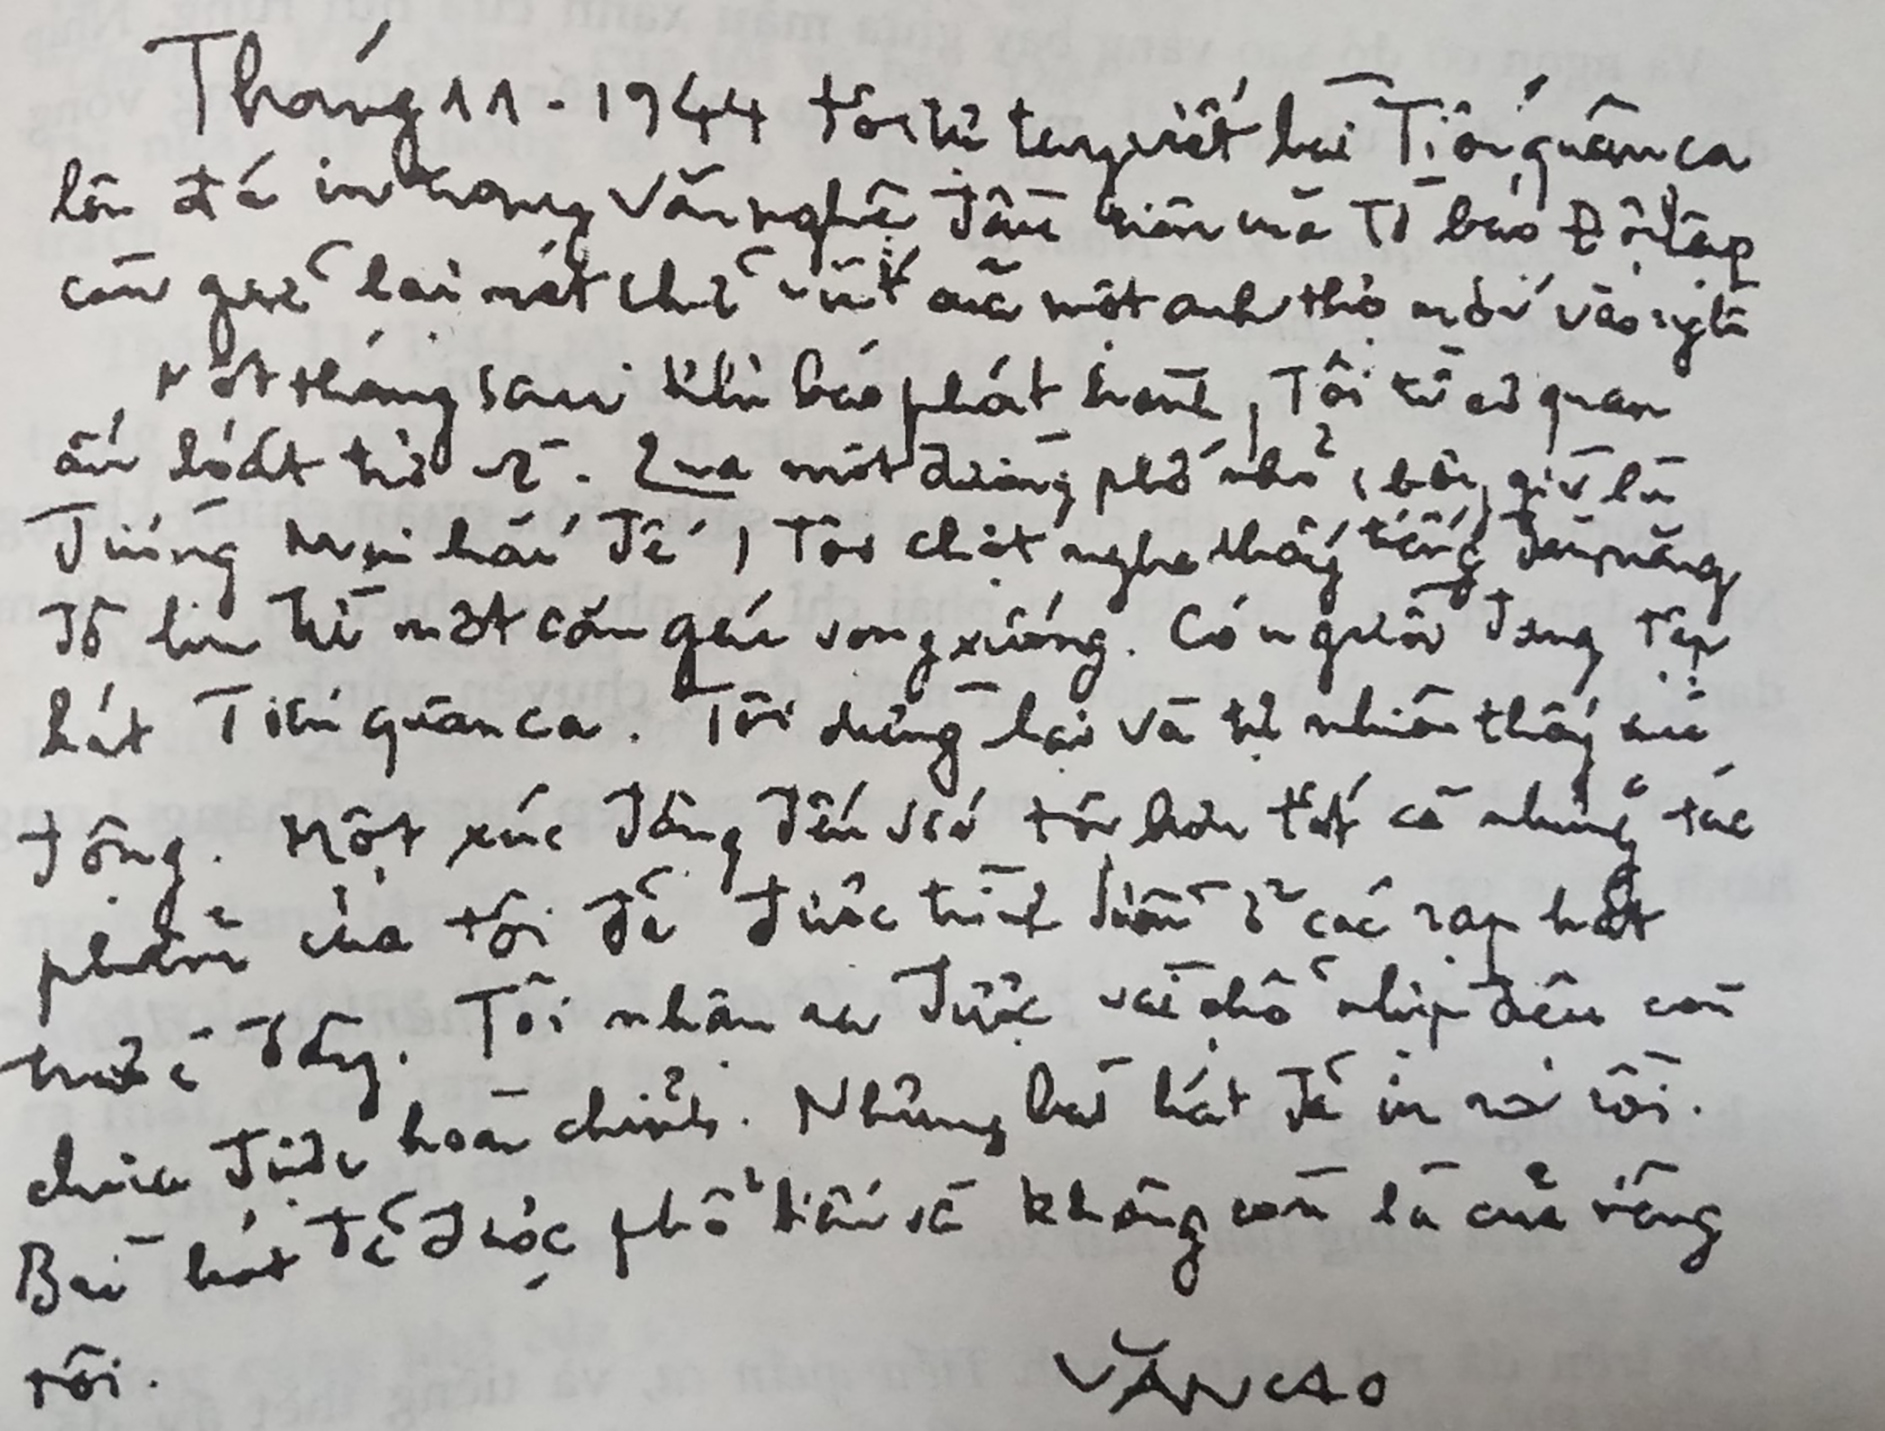 Tháng 11-1944 tôi tự tay viết bài Tiến quân ca
lên đá in trong văn nghệ đầu tiên của tờ báo Độc lập
còn giữ lại nét chữ viết của một anh thợ mới vào nghề
Một tháng sau khi báo phát hành, Tôi từ cơ quan
ấn loát trở về. Qua một đường phố nhỏ, bây giờ là
đường Mai hắc đế, Tôi chợt nghe thấy tiếng đàn măng
đô lin từ một căn gác vọng xuống. Có người đang tập
hát Tiến quân ca. Tôi dừng lại và tự nhiên thấy xúc
động. Một xúc động đến với tôi hơn tất cả những tác
phẩm của tôi đã được trình diễn ở các rạp hát
trước đây. Tôi nhận ra được vài chỗ nhịp điệu còn
chưa được hoàn chỉnh. Nhưng bài hát đã in ra rồi.
Bài hát đã được phổ biến và không còn là của riêng
rồi.
VĂN CAO